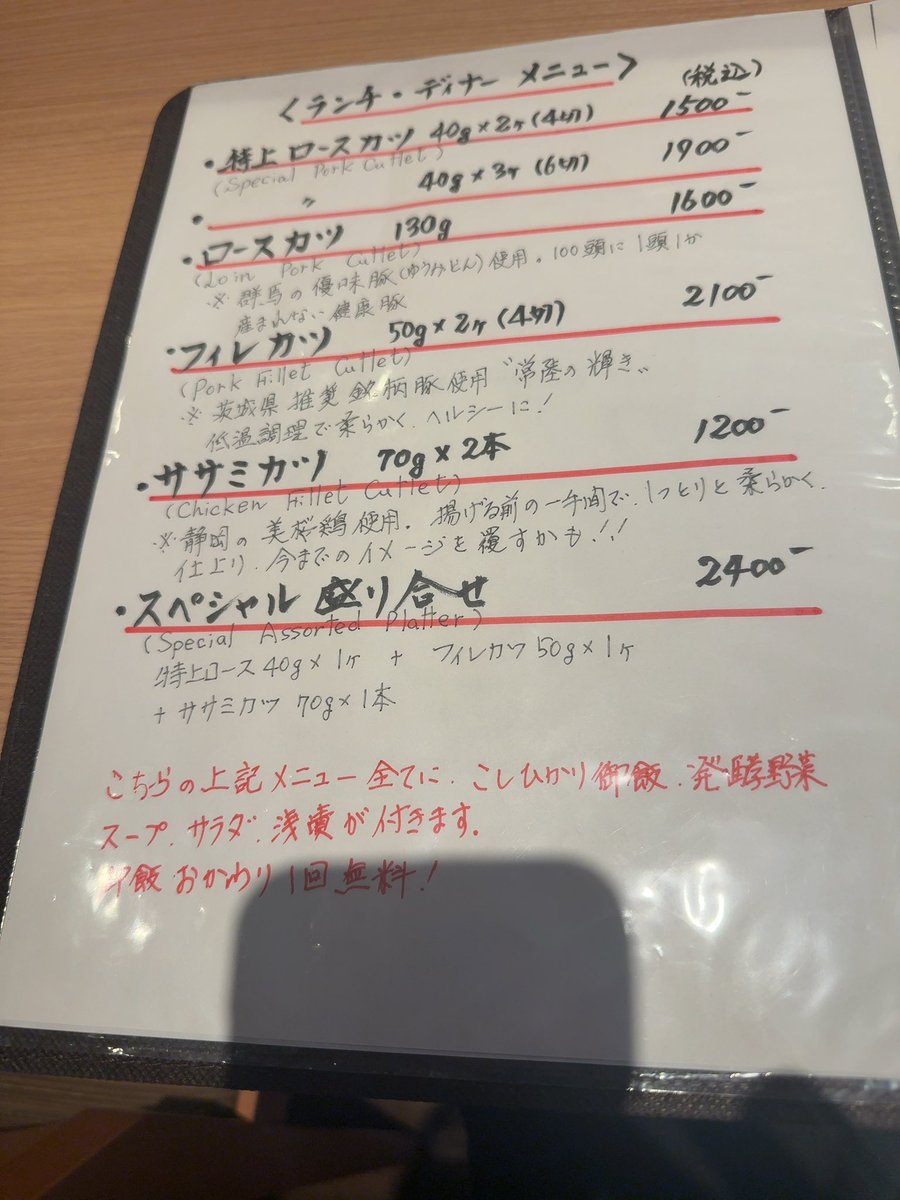 <ランチ・ディナー メニュー> (税込)
・特上ロースカツ 40g×2ヶ(4切) 1500-
(Special Pork Cutlet)
・ 〃 40g×3ヶ(6切) 1900-
・ロースカツ 130g 1600-
(Loin Pork Cutlet)
※群馬の優味豚(ゆうみどん)使用。100頭に1頭しか
産まれない健康豚
・フィレカツ 50g×2ヶ(4切) 2100-
(Pork Fillet Cutlet)
※茨城県推奨銘柄豚使用〝常陸の輝き〟
低温調理で柔らかく、ヘルシーに!
・ササミカツ 70g×2本 1200-
(Chicken Fillet Cutlet)
※静岡の美桜鶏使用。揚げる前の一手間で、しっとりと柔らかく、
仕上り、今までのイメージを覆すかも!!
・スペシャル盛り合せ 2400-
(Special Assorted Platter)
特上ロース40g×1ヶ + フィレカツ50g×1ヶ
+ササミカツ 70g×1本
こちらの上記メニュー全てに、こしひかり御飯、発酵野菜
スープ、サラダ、浅漬が付きます。
御飯おかわり1回無料!